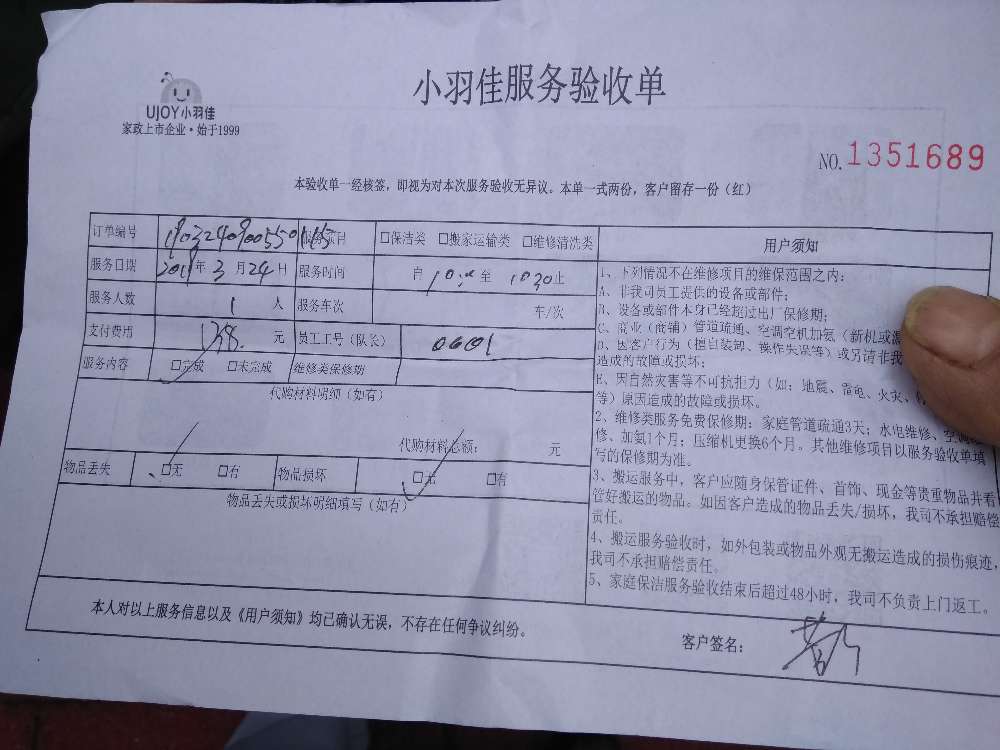 小羽佳服务验收单
UJOY小羽佳
家政上市企业·始于1999
NO.1351689
本验收单一经核签，即视为对本次服务验收无异议。本单一式两份，客户留存一份（红）
订单编号 服务项目 □保洁类 □搬家运输类 □维修清洗类
服务日期 2019年3月24日 服务时间 自 至 1030止
服务人数 1人 服务车次 车/次
支付费用 138. 元 员工工号（队长） 0601
服务内容 □完成 □未完成 维修类保修期
代购材料明细（如有）
代购材料总额： 元
物品丢失 □无 □有 物品损坏 □无 □有
物品丢失或损坏明细填写（如有）
用户须知
1、下列情况不在维修项目的维保范围之内：
A、非我司员工提供的设备或部件；
B、设备或部件本身已经超过出厂保修期；
C、商业（商铺）管道疏通、空调空机加氨（新机或漏
D、因客户行为（擅自装卸、操作失误等）或另请非我
造成的故障或损坏；
E、因自然灾害等不可抗拒力（如：地震、雷电、火灾、
等）原因造成的故障或损坏。
2、维修类服务免费保修期：家庭管道疏通3天；水电维修、空调维
修、加氨1个月；压缩机更换6个月。其他维修项目以服务验收单填
写的保修期为准。
3、搬运服务中，客户应随身保管证件、首饰、现金等贵重物品并看
管好搬运的物品。如因客户造成的物品丢失/损坏，我司不承担赔偿
责任。
4、搬运服务验收时，如外包装或物品外观无搬运造成的损伤痕迹，
我司不承担赔偿责任。
5、家庭保洁服务验收结束后超过48小时，我司不负责上门返工。
本人对以上服务信息以及《用户须知》均已确认无误，不存在任何争议纠纷。
客户签名：